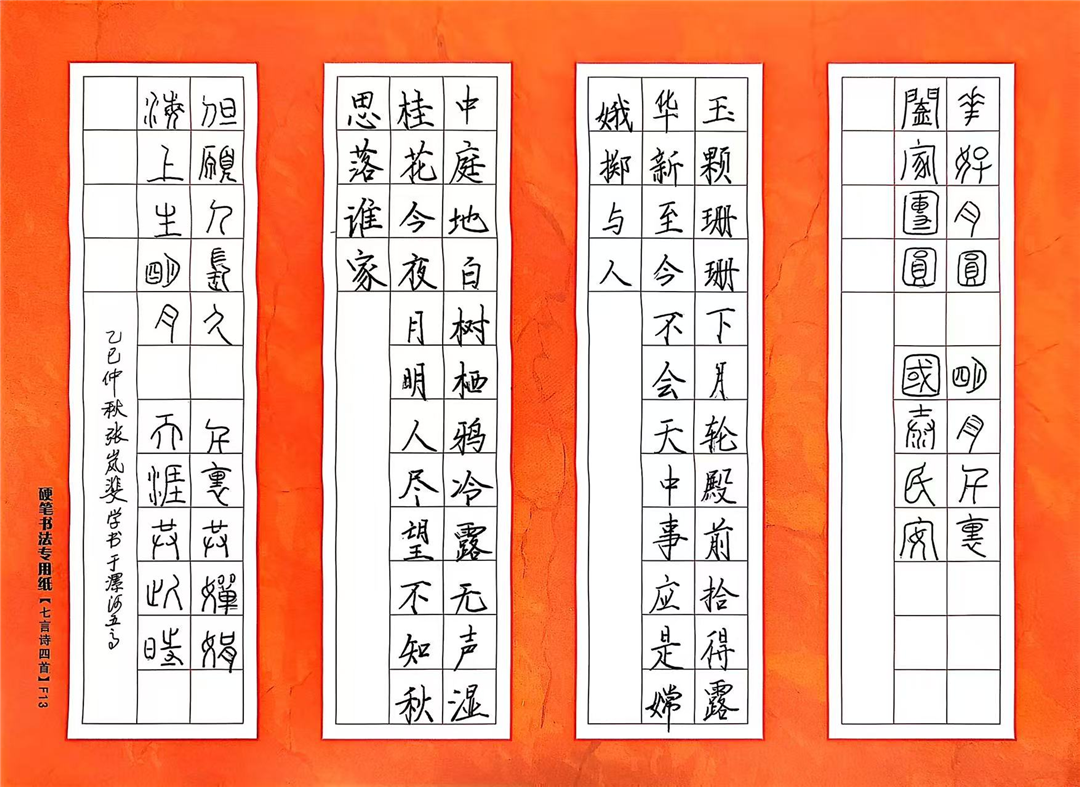 華好月圓 明月千裏
闔家團圓 國泰民安
玉颗珊珊下月轮殿前拾得露
华新至今不会天中事应是嫦
娥掷与人
中庭地白树栖鸦冷露无声湿
桂花今夜月明人尽望不知秋
思落谁家
但願人長久 千裏共嬋娟
海上生明月 天涯共此時
乙巳仲秋张岚斐学书于漯河五高
硬笔书法专用纸【七言诗四首】F13